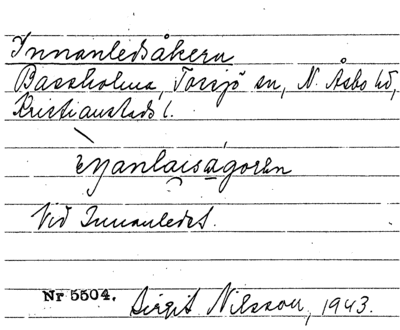 Innanledsåkern
Bassholma, Torsjö sn, N. Åsbo hd,
Kristianstads l.
Vid Innanledet.
Nr 5504. Birgit Nilsson, 1943.